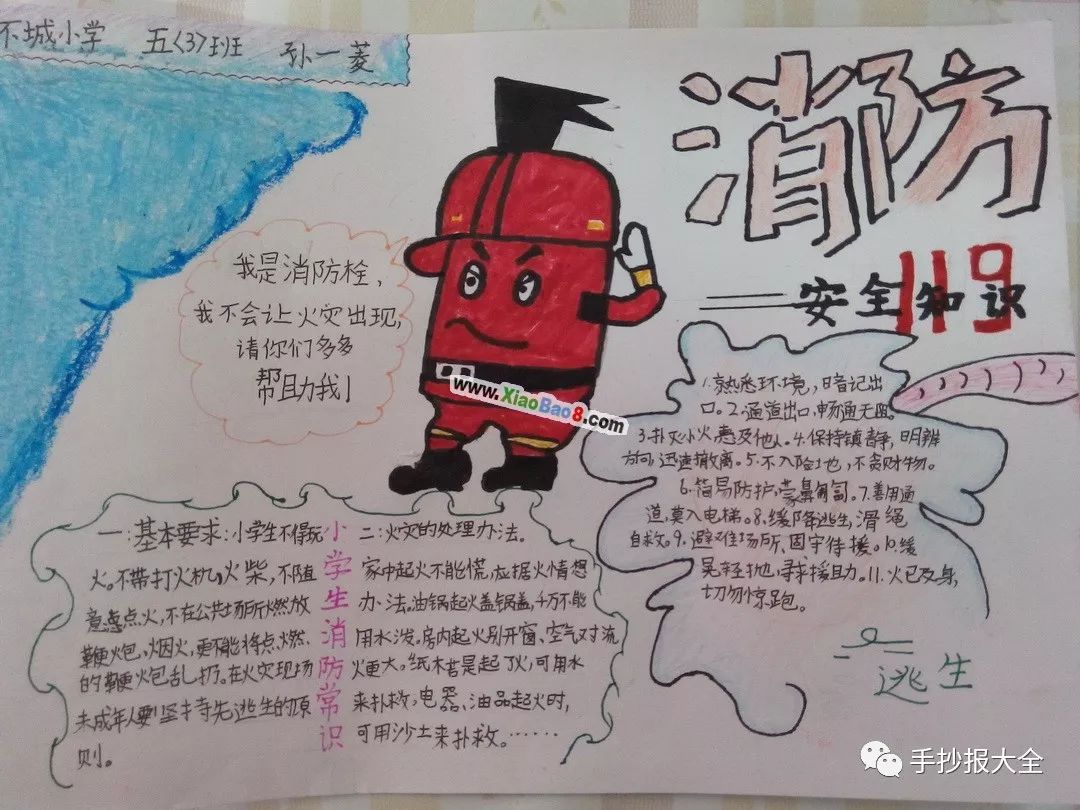 不城小学 五〈3〉班 孙一菱
消防
119
安全知识
我是消防栓,
我不会让火灾出现,
请你们多多
帮助我!
www.XiaoBao8.com
1.熟悉环境,暗记出
口。2.通道出口,畅通无阻。
3.扑灭小火,惠及他人。4.保持镇静,明辨
方向,迅速撤离。5.不入险地,不贪财物。
6.简易防护,蒙鼻匍匐。7.善用通
道,莫入电梯。8.缓降逃生,滑绳
自救。9.避难场所、固守待援。10.缓
晃轻抛,寻求援助。11.火已及身,
切勿惊跑。
逃生
小学生消防常识
一:基本要求:小学生不得玩
火。不带打火机,火柴,不随
意点火,不在公共场所燃放
鞭炮,烟火,更不能将点燃
的鞭炮乱扔。在火灾现场
未成年人要坚持先逃生的原
则。
二:火灾的处理办法。
家中起火不能慌,应据火情想
办法。油锅起火盖锅盖,千万不能
用水泼。房内起火别开窗、空气对流
火更大。纸木若是起了火,可用水
来扑救,电器、油品起火时,
可用沙土来扑救。……
手抄报大全